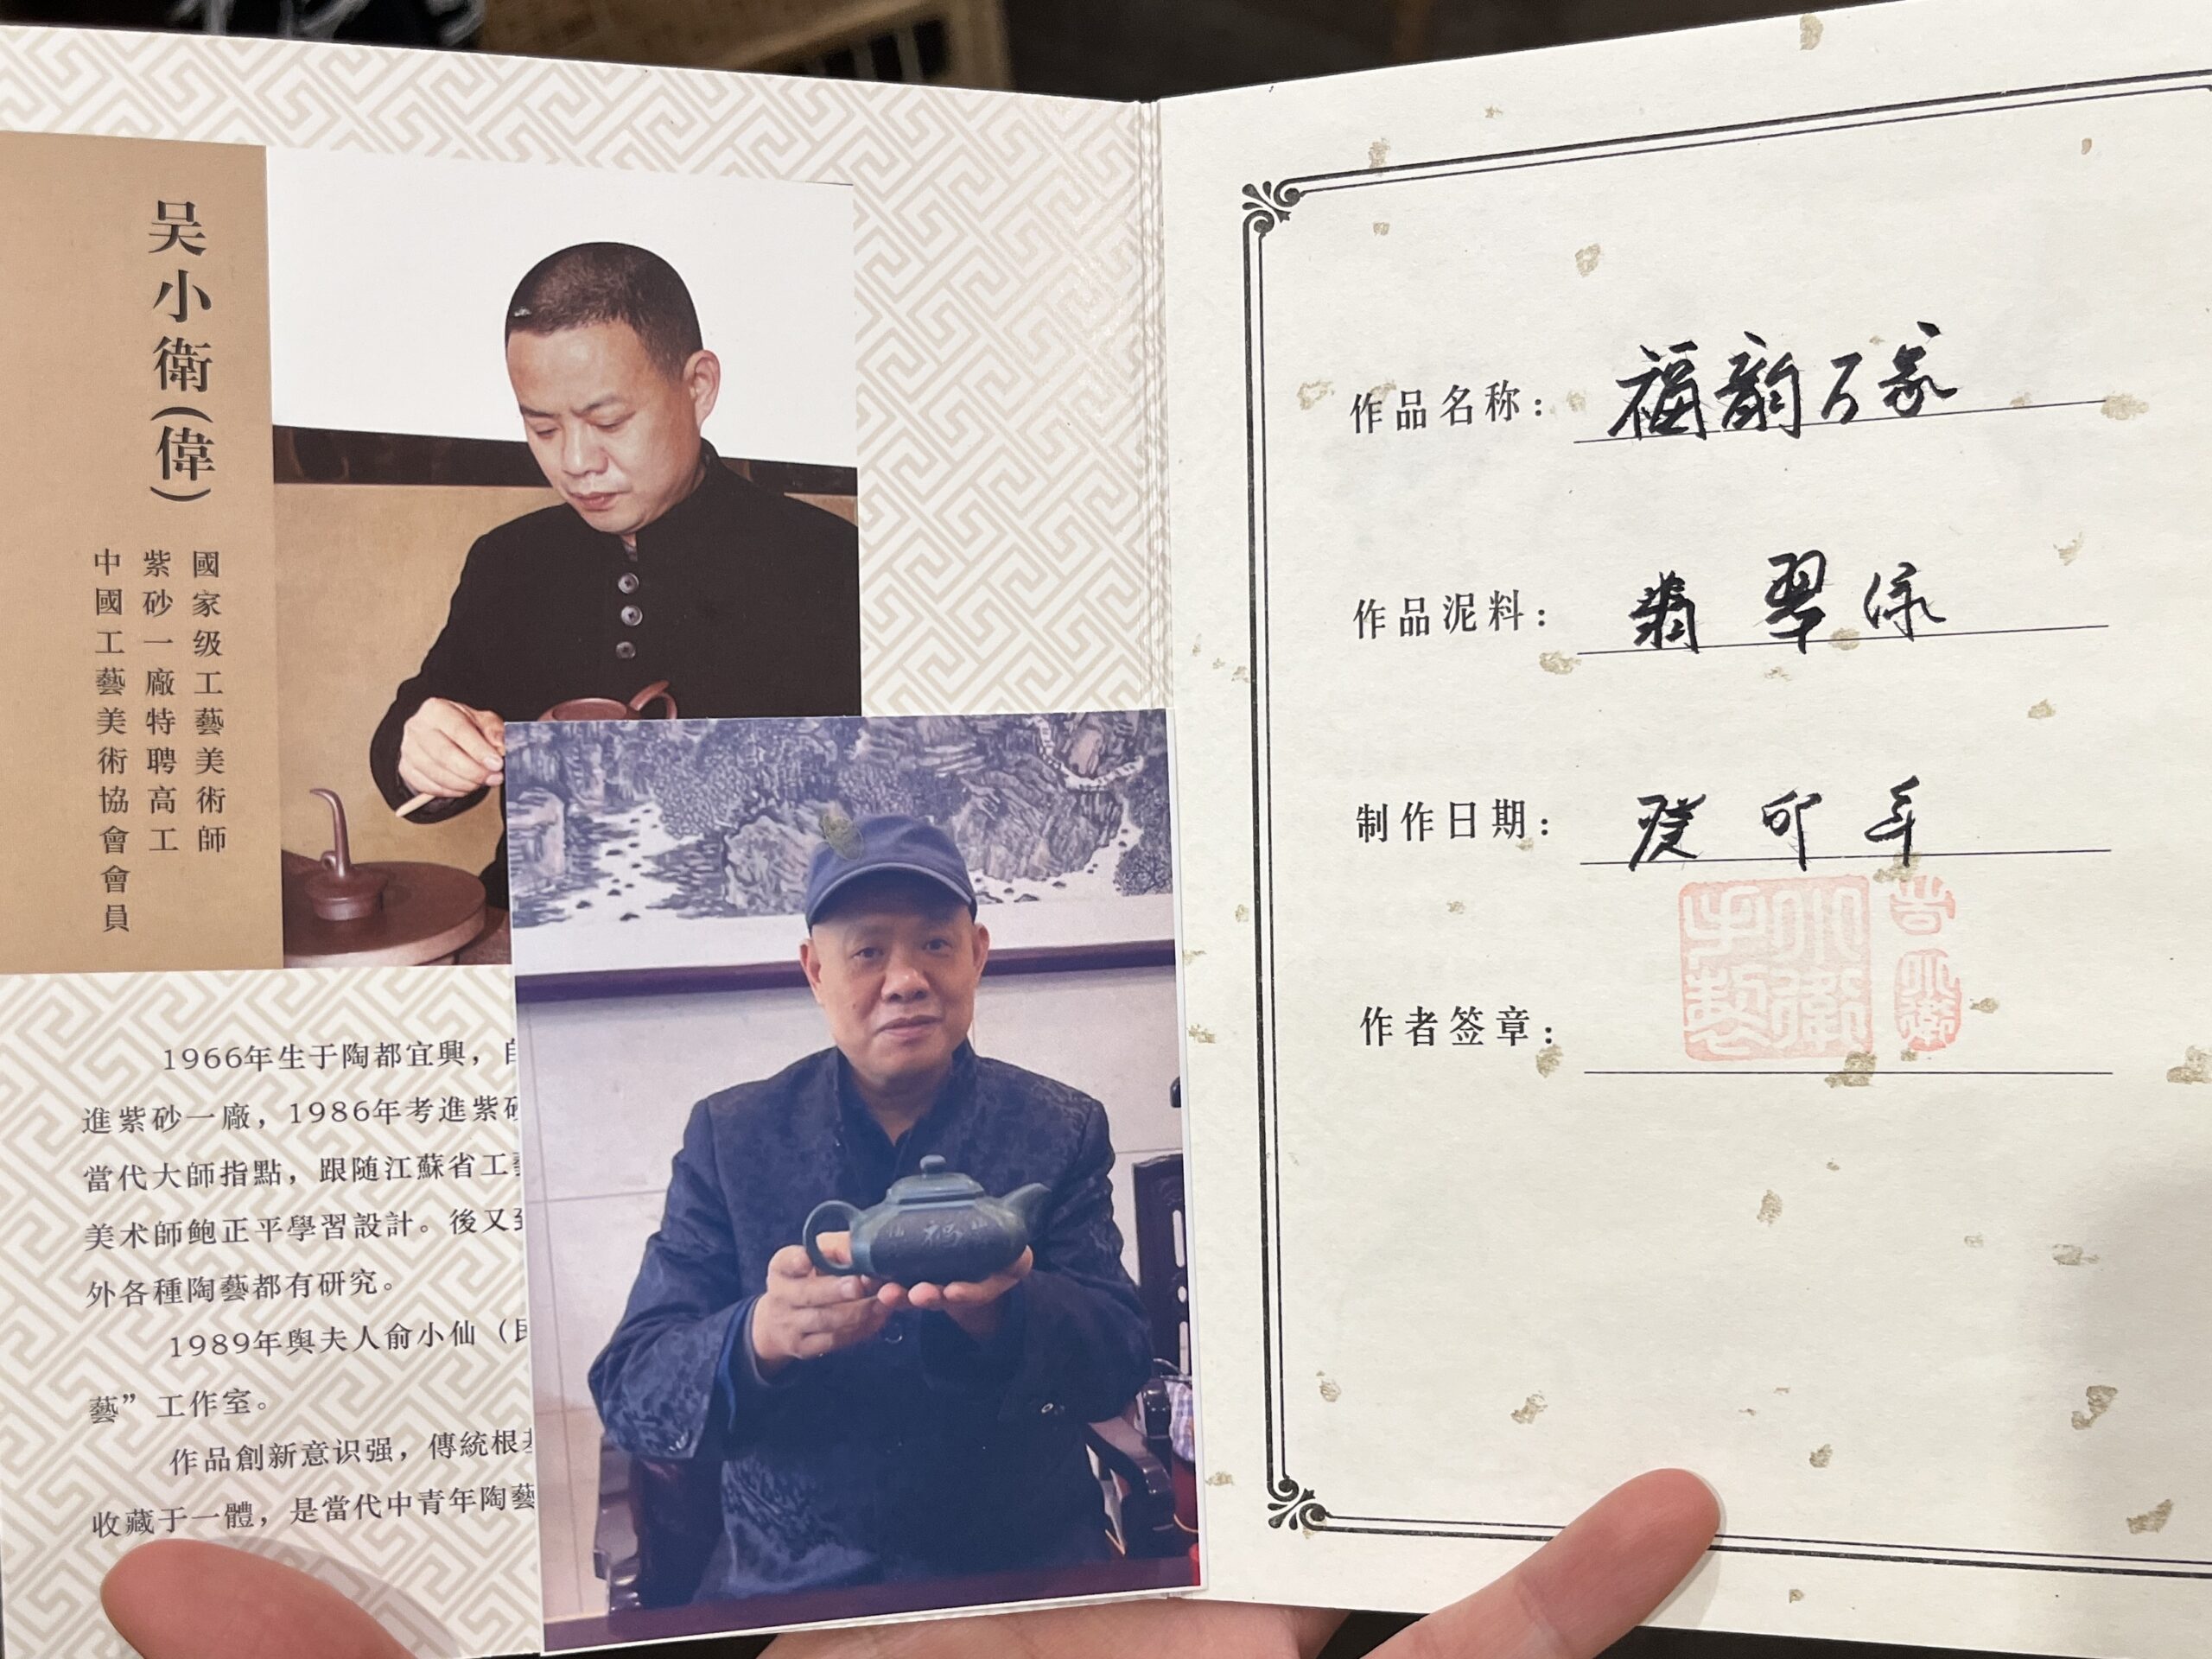 吴小衛(偉)
國家级工藝美術師
紫砂一廠特聘高工
中國工藝美術協會會員
1966年生于陶都宜興，自
進紫砂一廠，1986年考進紫砂
當代大師指點，跟随江蘇省工藝
美术師鮑正平學習設計。後又到
外各種陶藝都有研究。
1989年與夫人俞小仙（民
藝”工作室。
作品創新意识强，傳統根基
收藏于一體，是當代中青年陶藝
福
作品名称：福韵万家
作品泥料：翡翠绿
制作日期：癸卯年
作者签章：
小衛手製
吴小衛